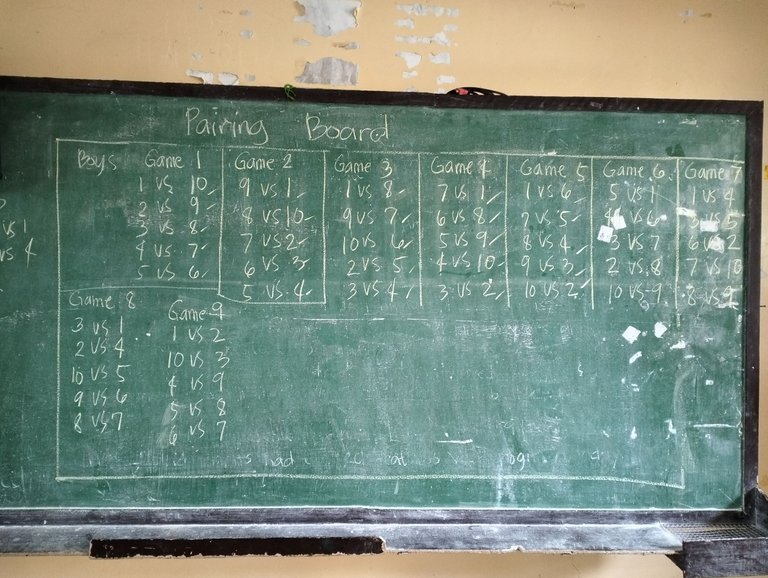 Pairing Board
Boys
Game 1
1 vs 10
2 vs 9
3 vs 8
4 vs 7
5 vs 6
Game 2
9 vs 1
8 vs 10
7 vs 2
6 vs 3
5 vs 4
Game 3
1 vs 8
9 vs 7
10 vs 6
2 vs 5
3 vs 4
Game 4
7 vs 1
6 vs 8
5 vs 9
4 vs 10
3 vs 2
Game 5
1 vs 6
2 vs 5
8 vs 4
9 vs 3
10 vs 2
Game 6
5 vs 1
4 vs 6
3 vs 7
2 vs 8
10 vs 9
Game 7
1 vs 4
3 vs 5
6 vs 2
7 vs 10
8 vs 9
Game 8
3 vs 1
2 vs 4
10 vs 5
9 vs 6
8 vs 7
Game 9
1 vs 2
10 vs 3
4 vs 9
5 vs 8
6 vs 7
vs 1
vs 4